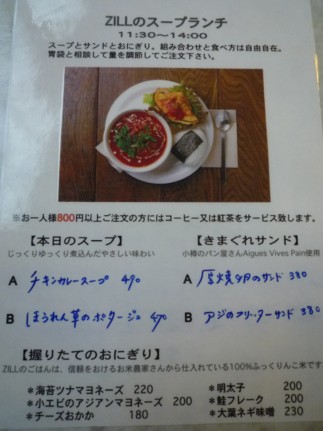 ZILLのスープランチ
11:30〜14:00
スープとサンドとおにぎり。組み合わせと食べ方は自由自在。
胃袋と相談して量を調節してご注文下さい。
※お一人様800円以上ご注文の方にはコーヒー又は紅茶をサービス致します。
【本日のスープ】
じっくりゆっくり煮込んだやさしい味わい
A チキンカレースープ 490
B ほうれん草のポタージュ 490
【きまぐれサンド】
小樽のパン屋さんAigues Vives Pain使用
A 厚焼卵のサンド 380
B アジのフリッターサンド 380
【握りたてのおにぎり】
ZILLのごはんは、信頼をおけるお米農家さんから仕入れている100%ふっくりんこ米です。
*海苔ツナマヨネーズ 220
*小エビのアジアンマヨネーズ 200
*チーズおかか 180
*明太子 200
*鮭フレーク 200
*大葉ネギ味噌 230